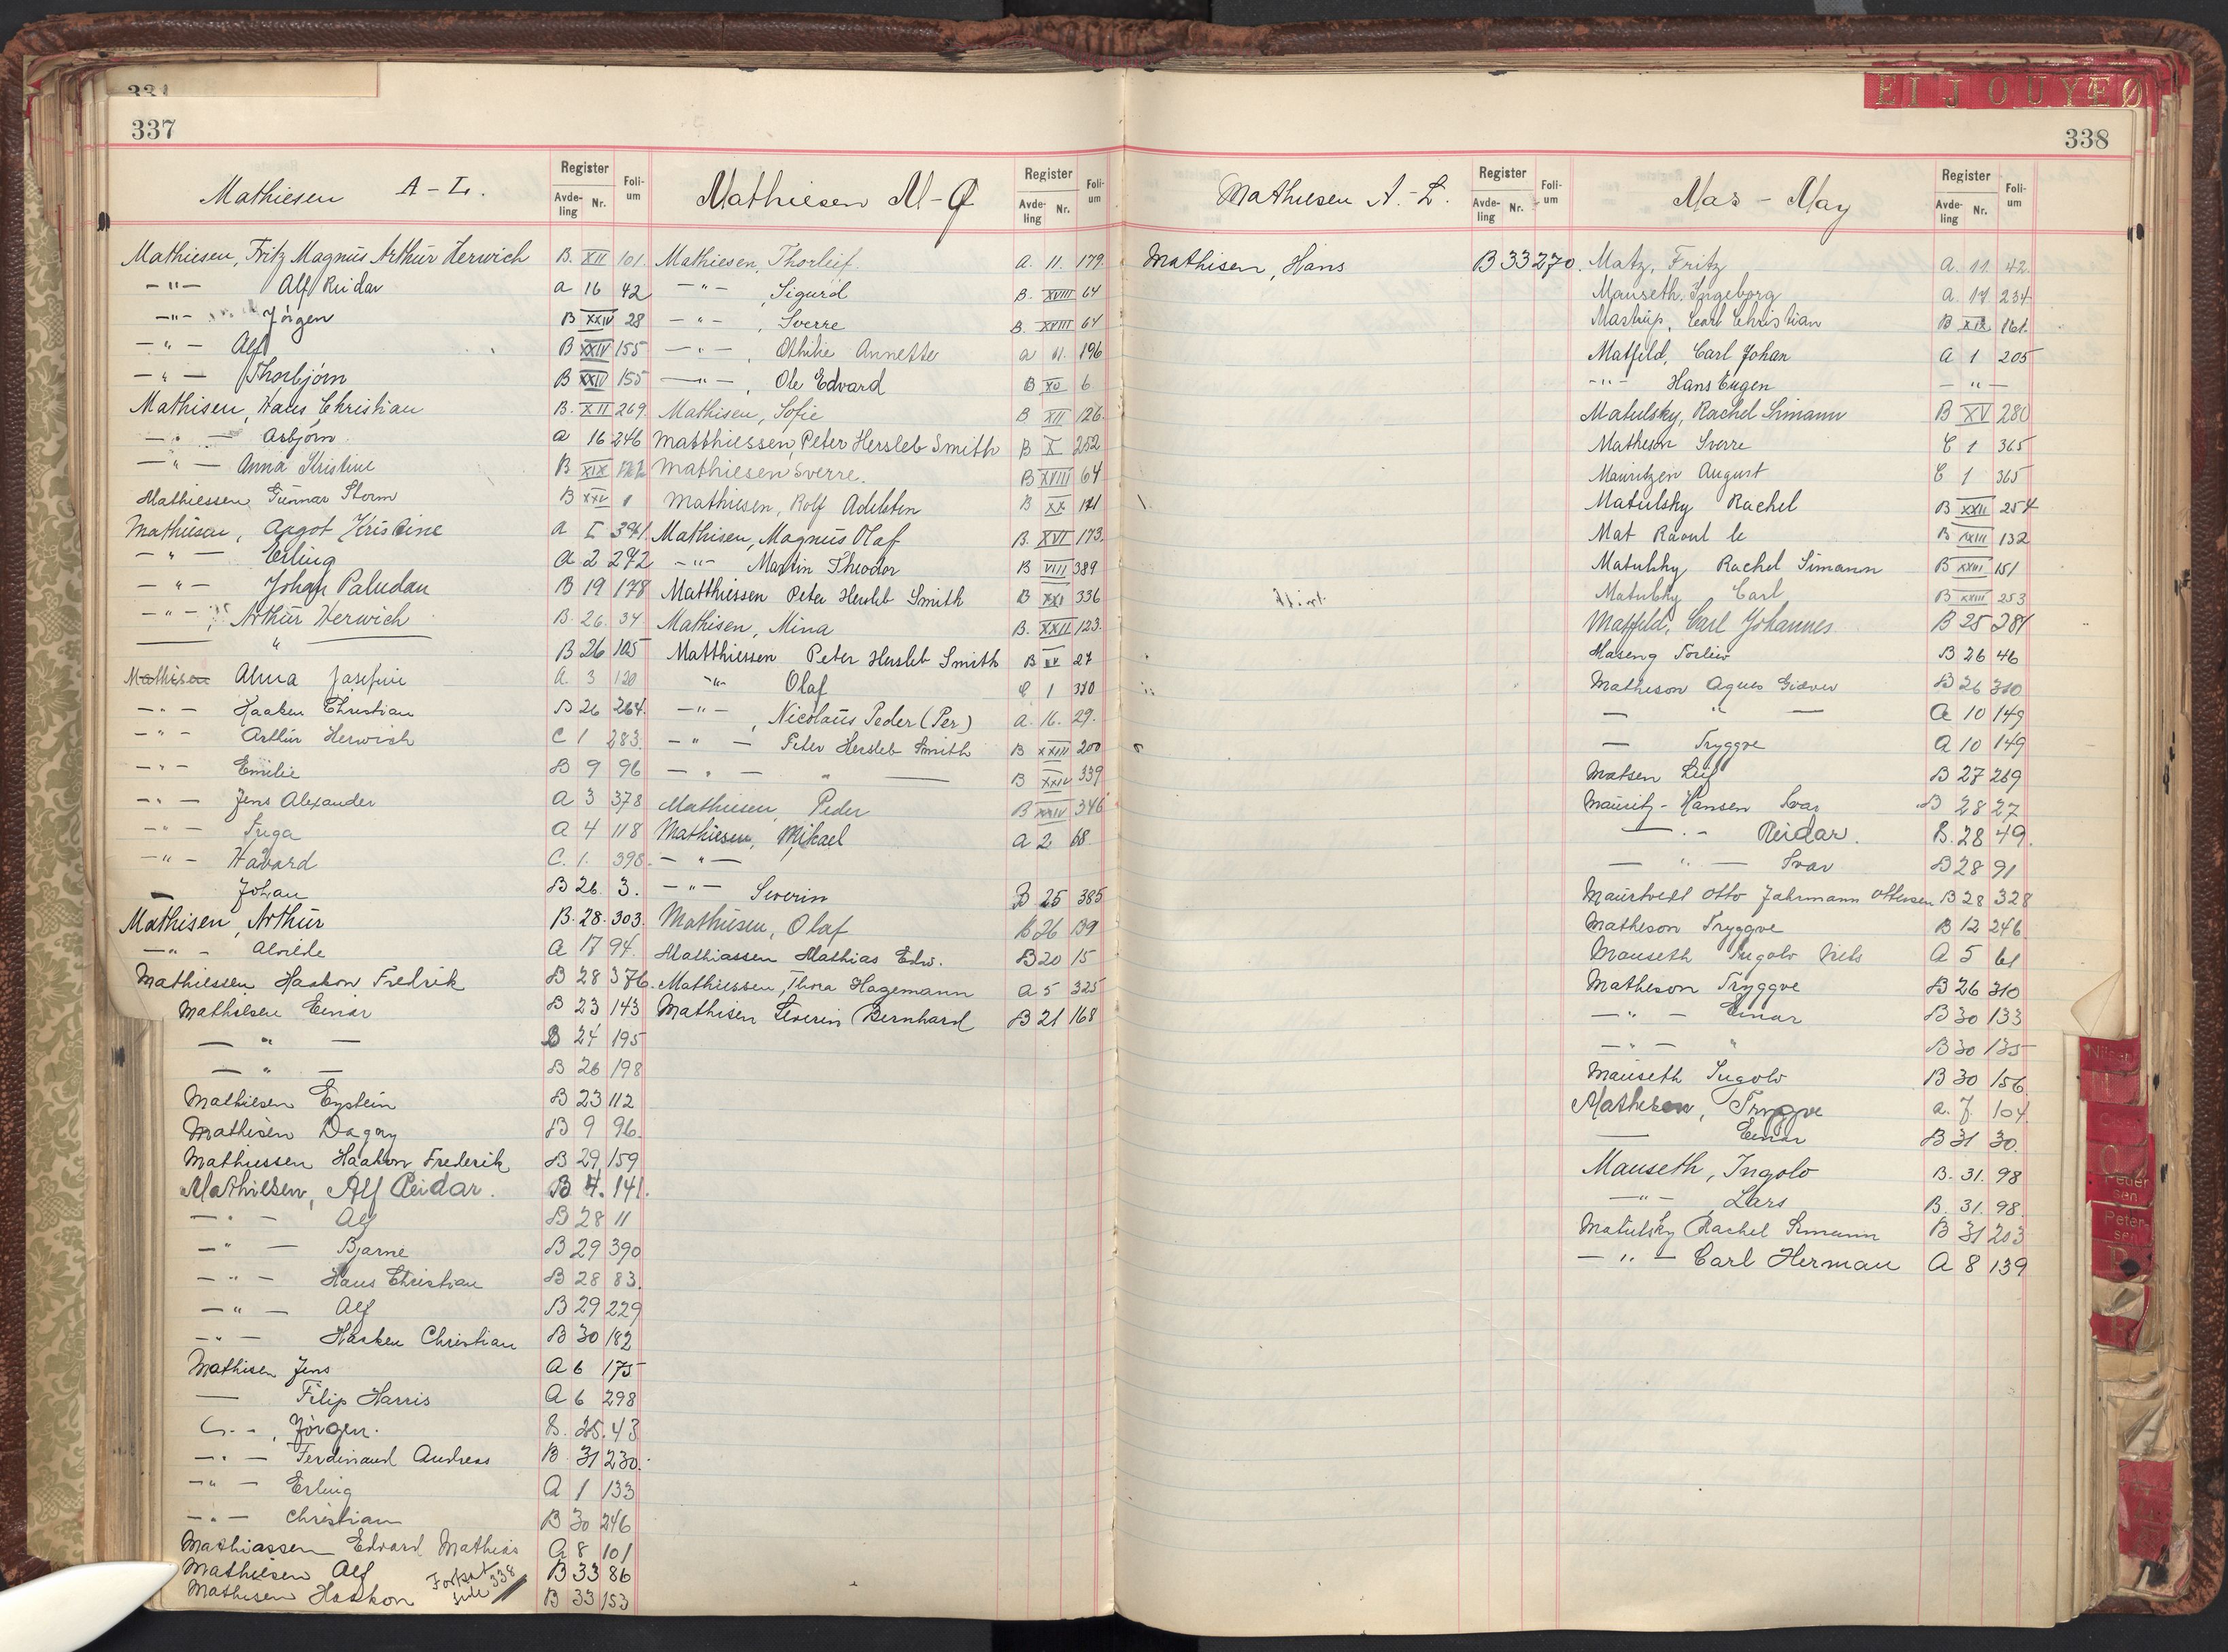 337
Mathiesen A-L.
Register
Avde-ling Nr.
Foli-um
Mathiesen, Fritz Magnus Arthur Herwich B. XII 101.
-"- Alf Reidar a 16 42
-"- Jörgen B XXIV 28
-"- Alf B XXIV 155
-"- Thorbjörn B XXIV 155
Mathisen, Hans Christian B. XII 269.
-"- Asbjörn a 16 246
-"- Anna Kristine B XIX
Mathiessen Gunnar Storm B XXV 1
Mathiesen, Aagot Kristine A I 391.
-"- Erling a 2 272
-"- Johan Paludan B 19 178
-"- Arthur Herwich B. 26. 34
" B 26 105
Mathisen Alma Josefine A. 3 120
-"- Haaken Christian B 26 264.
-"- Arthur Herwich C 1 283.
-"- Emilie B 9 96
-"- Jens Alexander A 3 378
-"- Inga A 4 118
-"- Havard C. 1. 398.
- Johan B 26. 3.
Mathisen, Arthur B. 28. 303.
-"- Alvilde A 17 94.
Mathiessen Haakon Fredrik B 28 376.
Mathiesen Einar B 23 143
-"- B 24 195
-"- B 26 198
Mathiesen Eystein B 23 112
Mathisen Dagny B 9 96.
Mathiessen Haakon Frederik B 29 159
Mathiesen, Alf Reidar. B 4. 141.
-"- Alf B 28 11
-"- Bjarne B 29 390
-"- Hans Christian B 28 83.
-"- Alf B 29 229
-"- Haaken Christian B 30 182
Mathisen Jens A 6 175
— Filip Harris A 6 298
-"-, Jörgen. B. 25. 43
-"- Ferdinand Andreas B 31 230.
-"- Erling A 1 133
-"- Christian B 30 246
Mathiassen Edvard Mathias A 8 101
Mathiesen Alf B 33 86
Mathisen Haakon B 33 153
Fortsat side 338
Mathiesen M-Ø
Register
Avde-ling Nr.
Foli-um
Mathiesen, Thorleif A. 11. 179.
-"-, Sigurd B. XVIII 64
-"-, Sverre B. XVIII 64
-"-, Othilie Annette a 11. 196
-"-, Ole Edvard B XV 6
Mathisen, Sofie B XII 126.
Matthiessen, Peter Hersleb Smith B X 252
Mathiesen Sverre. B XVIII 64
Mathiesen, Rolf Adelsten B XX 171
Mathisen, Magnus Olaf B. XVI 173.
-"- Martin Theodor B VIII 389
Matthiessen Peter Hersleb Smith B XXI 336
Mathisen, Mina B. XXII 123.
Matthiessen Peter Hersleb Smith B XV 27
-"- Olaf C 1 310
-"-, Nicolaus Peder (Per) A. 16. 29.
-"- Peter Hersleb Smith B XXIII 200
-"- " — B XXIV 339
Mathiesen, Peder B XXIV 346
Mathiesen, Mikael A 2 68
-"-
-"- Severin B 25 385
Mathiesen, Olaf B 26 139
Mathiassen Mathias Edv. B 20 15
Mathiessen, Thora Hagemann A 5 325
Mathisen Severin Bernhard B 21 168
E I J O U Y Æ Ø
338
Mathiesen A.-L.
Register
Avde-ling Nr.
Foli-um
Mathisen, Hans B 33 270.
Mas - May
Register
Avde-ling Nr.
Foli-um
Matz, Fritz A. 11. 42.
Mauseth, Ingeborg A. 17. 234
Mastrup, Carl Christian B XIX 161.
Matfeld, Carl Johan A 1 205
-"- Hans Eugen —"—
Matulsky, Rachel Simann B XV 280
Matheson Sverre C 1 365
Mauritzen August C 1 365
Matulsky Rachel B XXII 254
Mat Raoul le B XXIII 132
Matulsky Rachel Simann B XXIII 151
Matulsky Carl B XXIII 253
Matfeld, Carl Johannes B 25 281
Maseng Torleiv B 26 46
Matheson Agnes Gidver B 26 310
— " — A 10 149
— Tryggve A 10 149
Matsen Leif B 27 269
Mauritz-Hansen Ivar B 28 27
-"- Reidar. B. 28 49.
-"- Ivar B 28 91
Maurtvedt Otto Jahrmann Ottersen B 28 328
Matheson Tryggve B 12 246
Mauseth Ingolv Nils A 5 61
Matheson Tryggve B 26 310
-"- Einar B 30 133
-"- " B 30 135
Mauseth Ingolv B 30 156
Matheson, Tryggve a. 7. 104.
— Einar B 31 30.
Mauseth, Ingolv B. 31. 98
-"- Lars B. 31. 98
Matulsky Rachel Simann B 31 203
-"- Carl Herman A 8 139
Nilsen
O
Peder sen
Peter sen
R